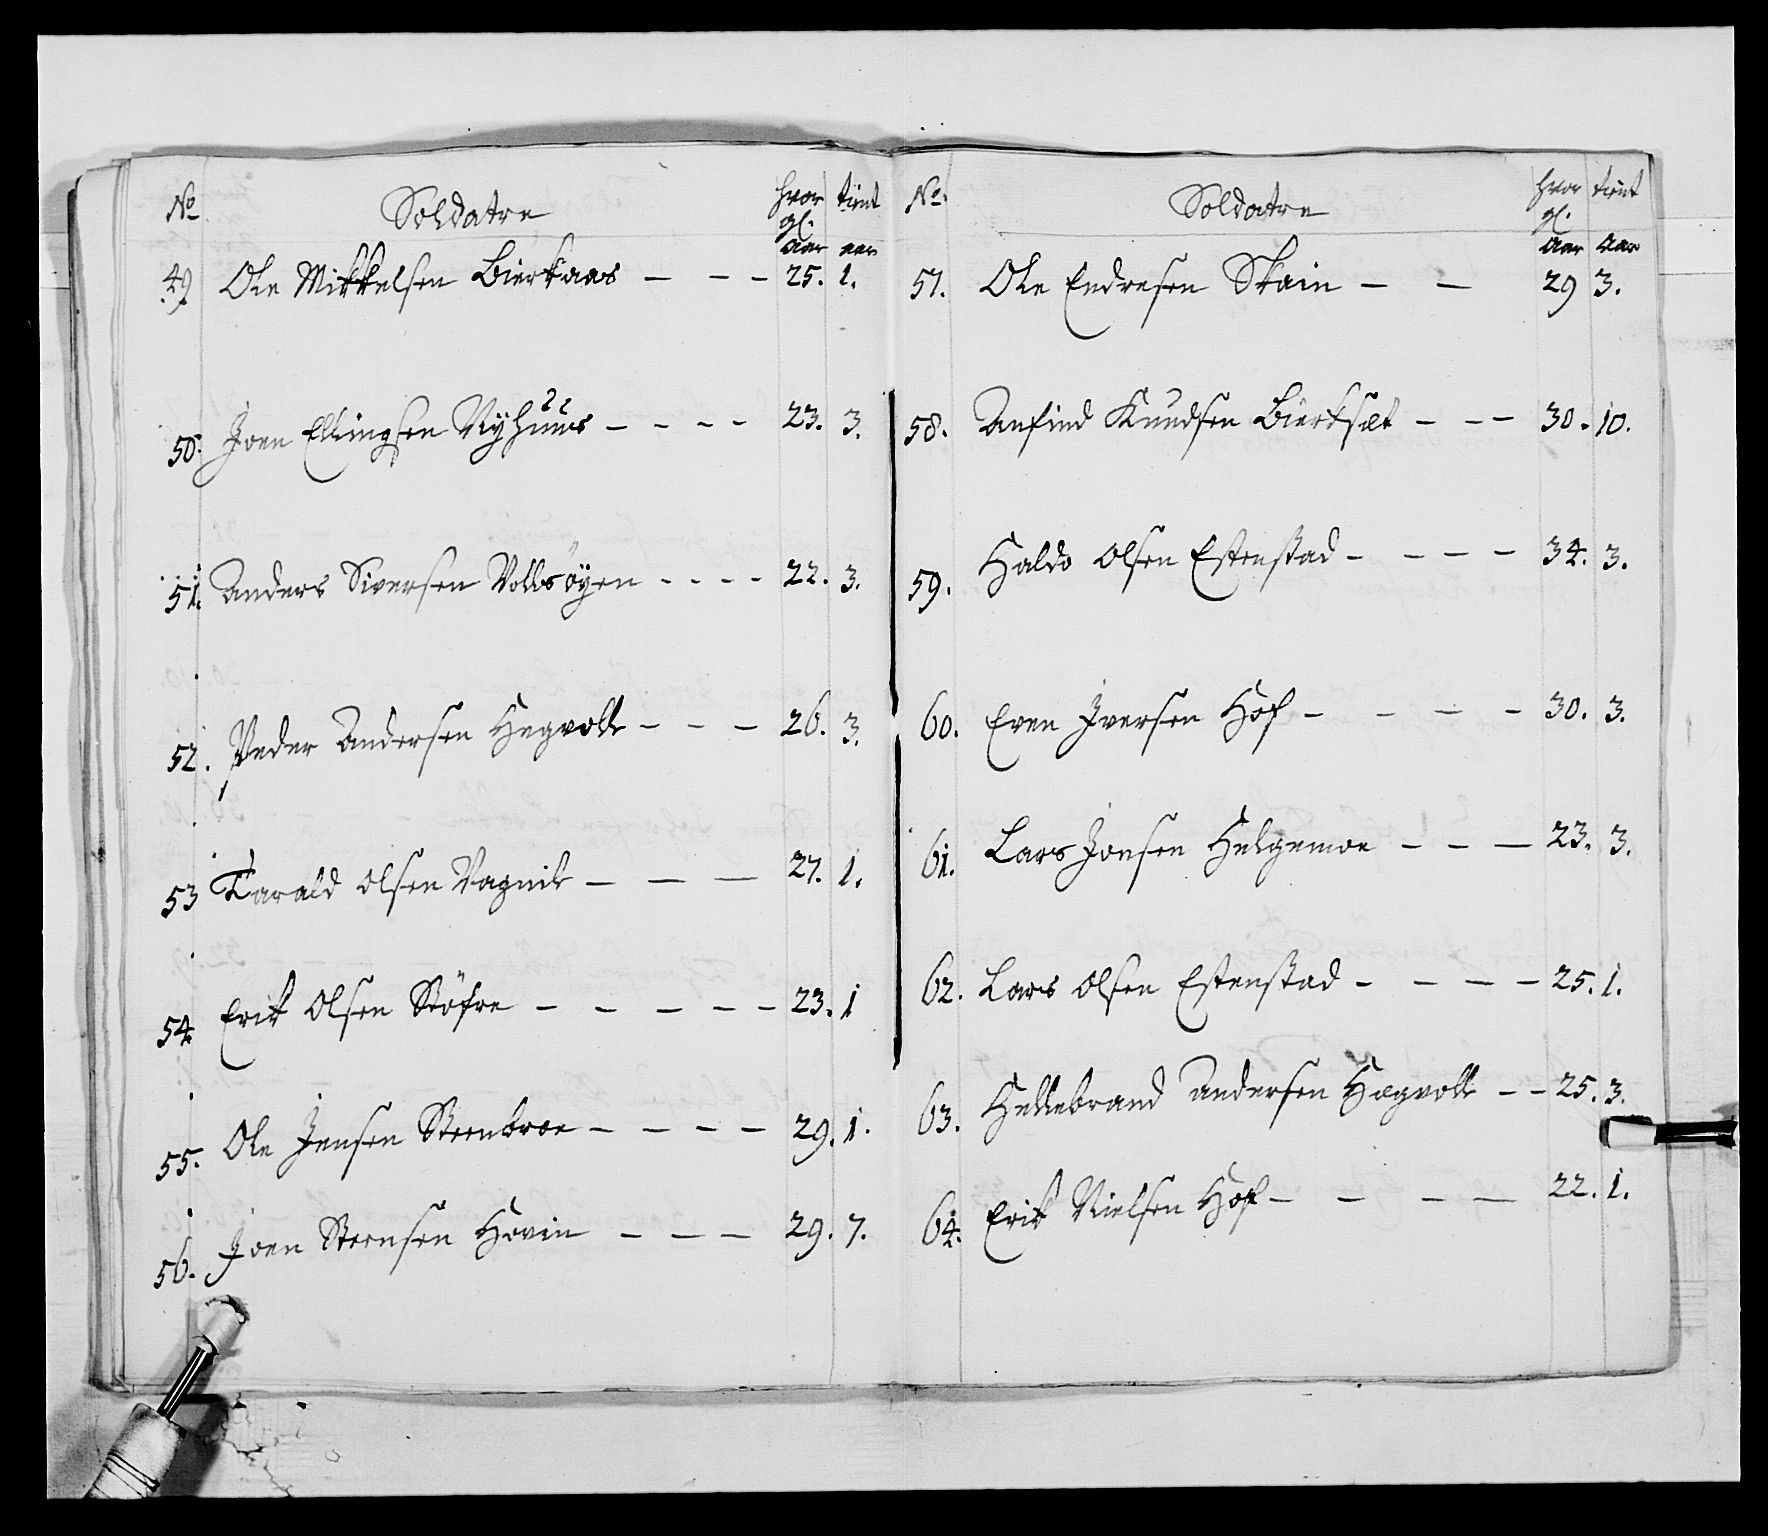 No Soldatre hvor gl. Aar tient aar
49 Ole Mikkelsen Bierkaas - - - 25. 1.
50. Joen Ellingsen Nyhuus - - - - 23. 3.
51. Anders Siversen Vollsøyen - - - - 22. 3.
52. Peder Andersen Hegvolt - - - 26. 3.
53 Tarald Olsen Vagnile - - - 27. 1.
54 Erik Olsen Støfre - - - - - 23. 1
55. Ole Jensen Steenbroe - - - - 29. 1.
56. Joen Steensen Hovin - - - 29. 7.
No. Soldatre hvor gl. Aar tient Aar
57. Ole Endresen Skain - - 29 3.
58. Anfind Knudsen Bierksæt - - - 30. 10.
59. Haldo Olsen Estenstad - - - - 34. 3.
60. Even Iversen Hof - - - - 30. 3.
61. Lars Jonsen Helgemoe - - - 23. 3.
62. Lars Olsen Estenstad - - - - 25. 1.
63. Hellebrand Andersen Hægvolt - - 25. 3.
64. Erik Nielsen Hof - - - - 22. 1.